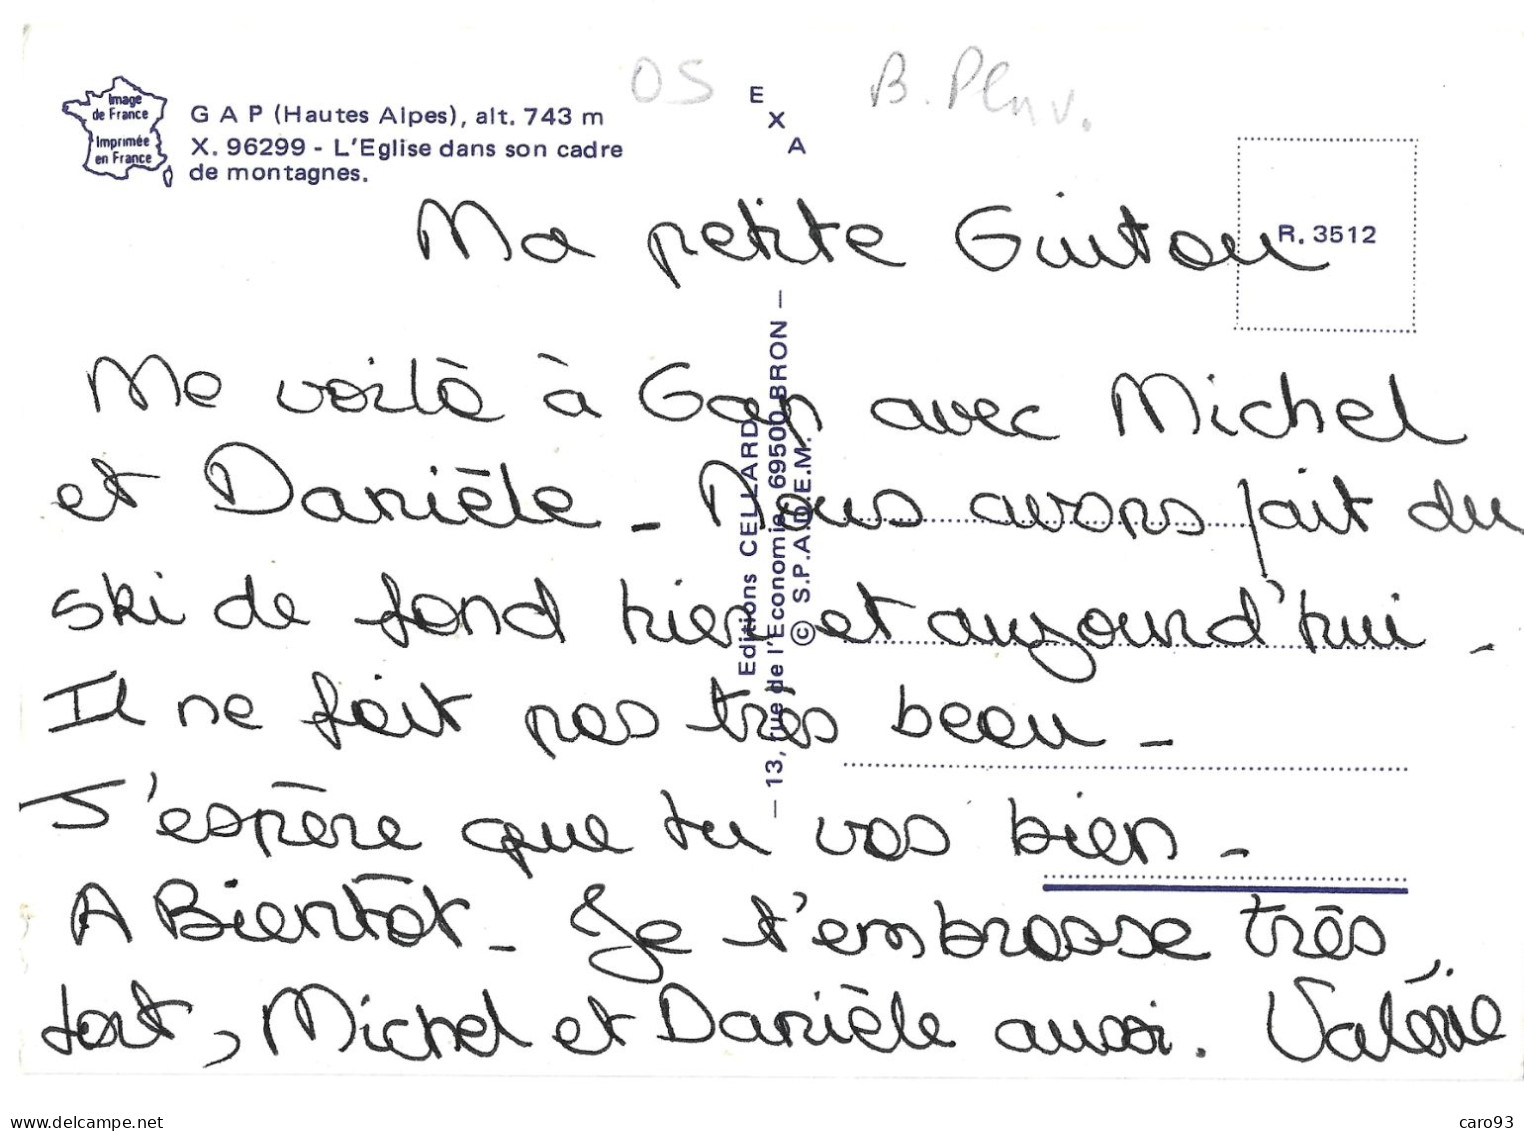 Image
de France
Imprimée
en France
G A P (Hautes Alpes), alt. 743 m
X. 96299 - L'Eglise dans son cadre
de montagnes.
05
E
X
A
R. 3512
Ma petite Guitou
Me voilà à Gap avec Michel
et Danièle - Nous avons fait du
ski de fond hier et aujourd'hui -
Il ne fait pas très beau -
J'espère que tu vas bien -
A Bientôt - Je t'embrasse très
fort, Michel et Danièle aussi. Valérie
Editions CELLARD
— 13, rue de l'Economie 69500 BRON —
© S.P.A.D.E.M.
www.delcampe.net
caro93